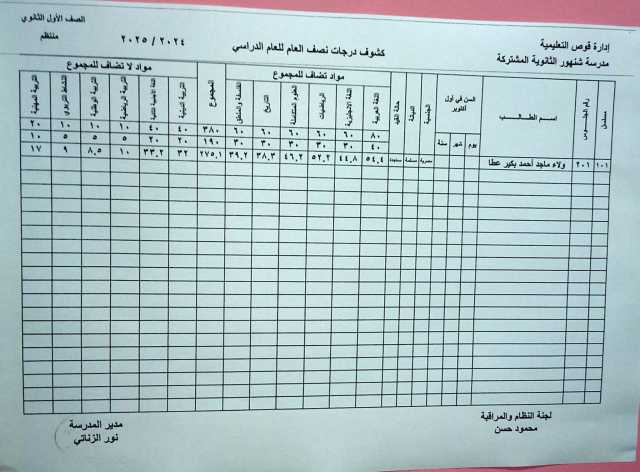 إدارة قوص التعليمية
مدرسة شنهور الثانوية المشتركة
كشوف درجات نصف العام للعام الدراسي ٢٠٢٤ / ٢٠٢٥
الصف الأول الثانوي
منتظم
مسلسل رقم الجلوس اسم الطالب السن في أول أكتوبر الجنسية الديانة حالة القيد مواد تضاف للمجموع المجموع مواد لا تضاف للمجموع
يوم شهر سنة
اللغة العربية اللغة الانجليزية الرياضيات العلوم المتكاملة التاريخ الفلسفة والمنطق التربية الدينية اللغة الأجنبية الثانية التربية الرياضية التربية الوطنية النشاط التربوي التربية المهنية
٨٠ ٦٠ ٦٠ ٦٠ ٦٠ ٦٠ ٣٨٠ ٤٠ ٤٠ ١٠ ١٠ ١٠ ٢٠
٤٠ ٣٠ ٣٠ ٣٠ ٣٠ ٣٠ ١٩٠ ٢٠ ٢٠ ٥ ٥ ٥ ١٠
١٠١ ٢٠١ ولاء ماجد أحمد بكير عطا مصرية مسلمة مستجدة ٥٤,٤ ٤٤,٨ ٥٢,٢ ٤٦,٢ ٣٨,٣ ٣٩,٢ ٢٧٥,١ ٣٢ ٣٣,٢ ١٠ ٨,٥ ٩ ١٧
لجنة النظام والمراقبة
محمود حسن
مدير المدرسة
نور الزناتي